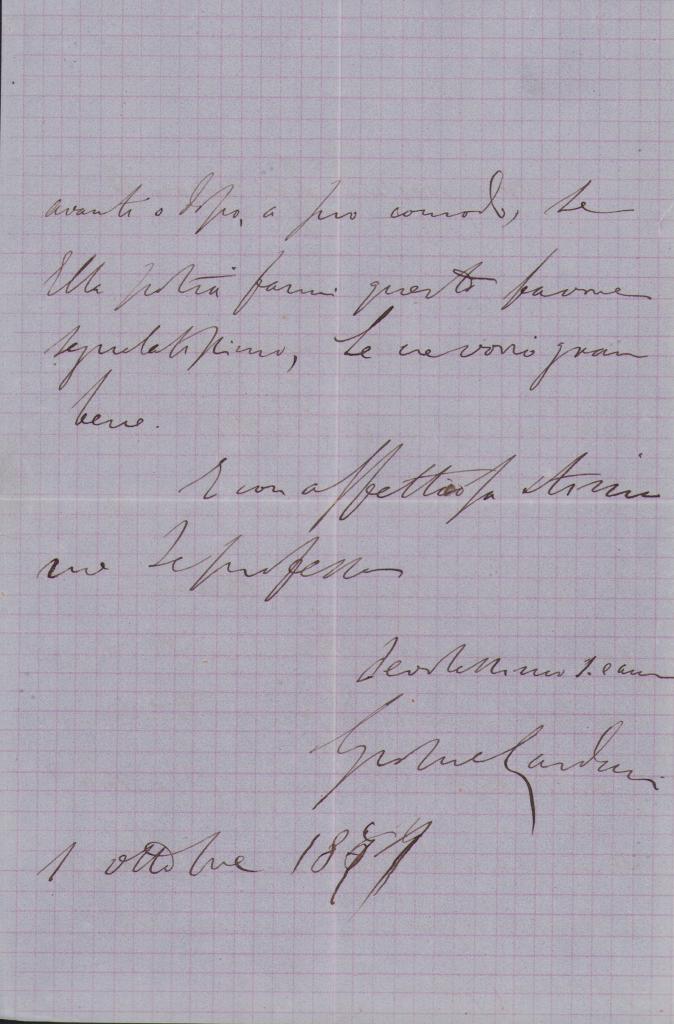 avanti o dopo, a suo comodo, se
Ella potrà farmi questo favore
segnalatissimo, Le ne vorrò gran
bene.
E con affettuosa stima
me Le professo
devotissimo s. e am
Giosue Carducci
1 ottobre 1877